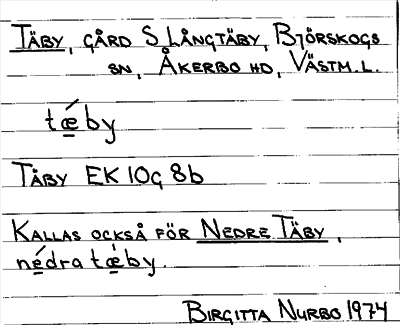 Täby, gård S Långtäby, Björskogs
sn, Åkerbo hd, Västm. l.
tǽ̱by
Täby EK 10g 8b
Kallas också för Nedre Täby,
né̱dra tæ̱̀by.
Birgitta Nurbo 1974